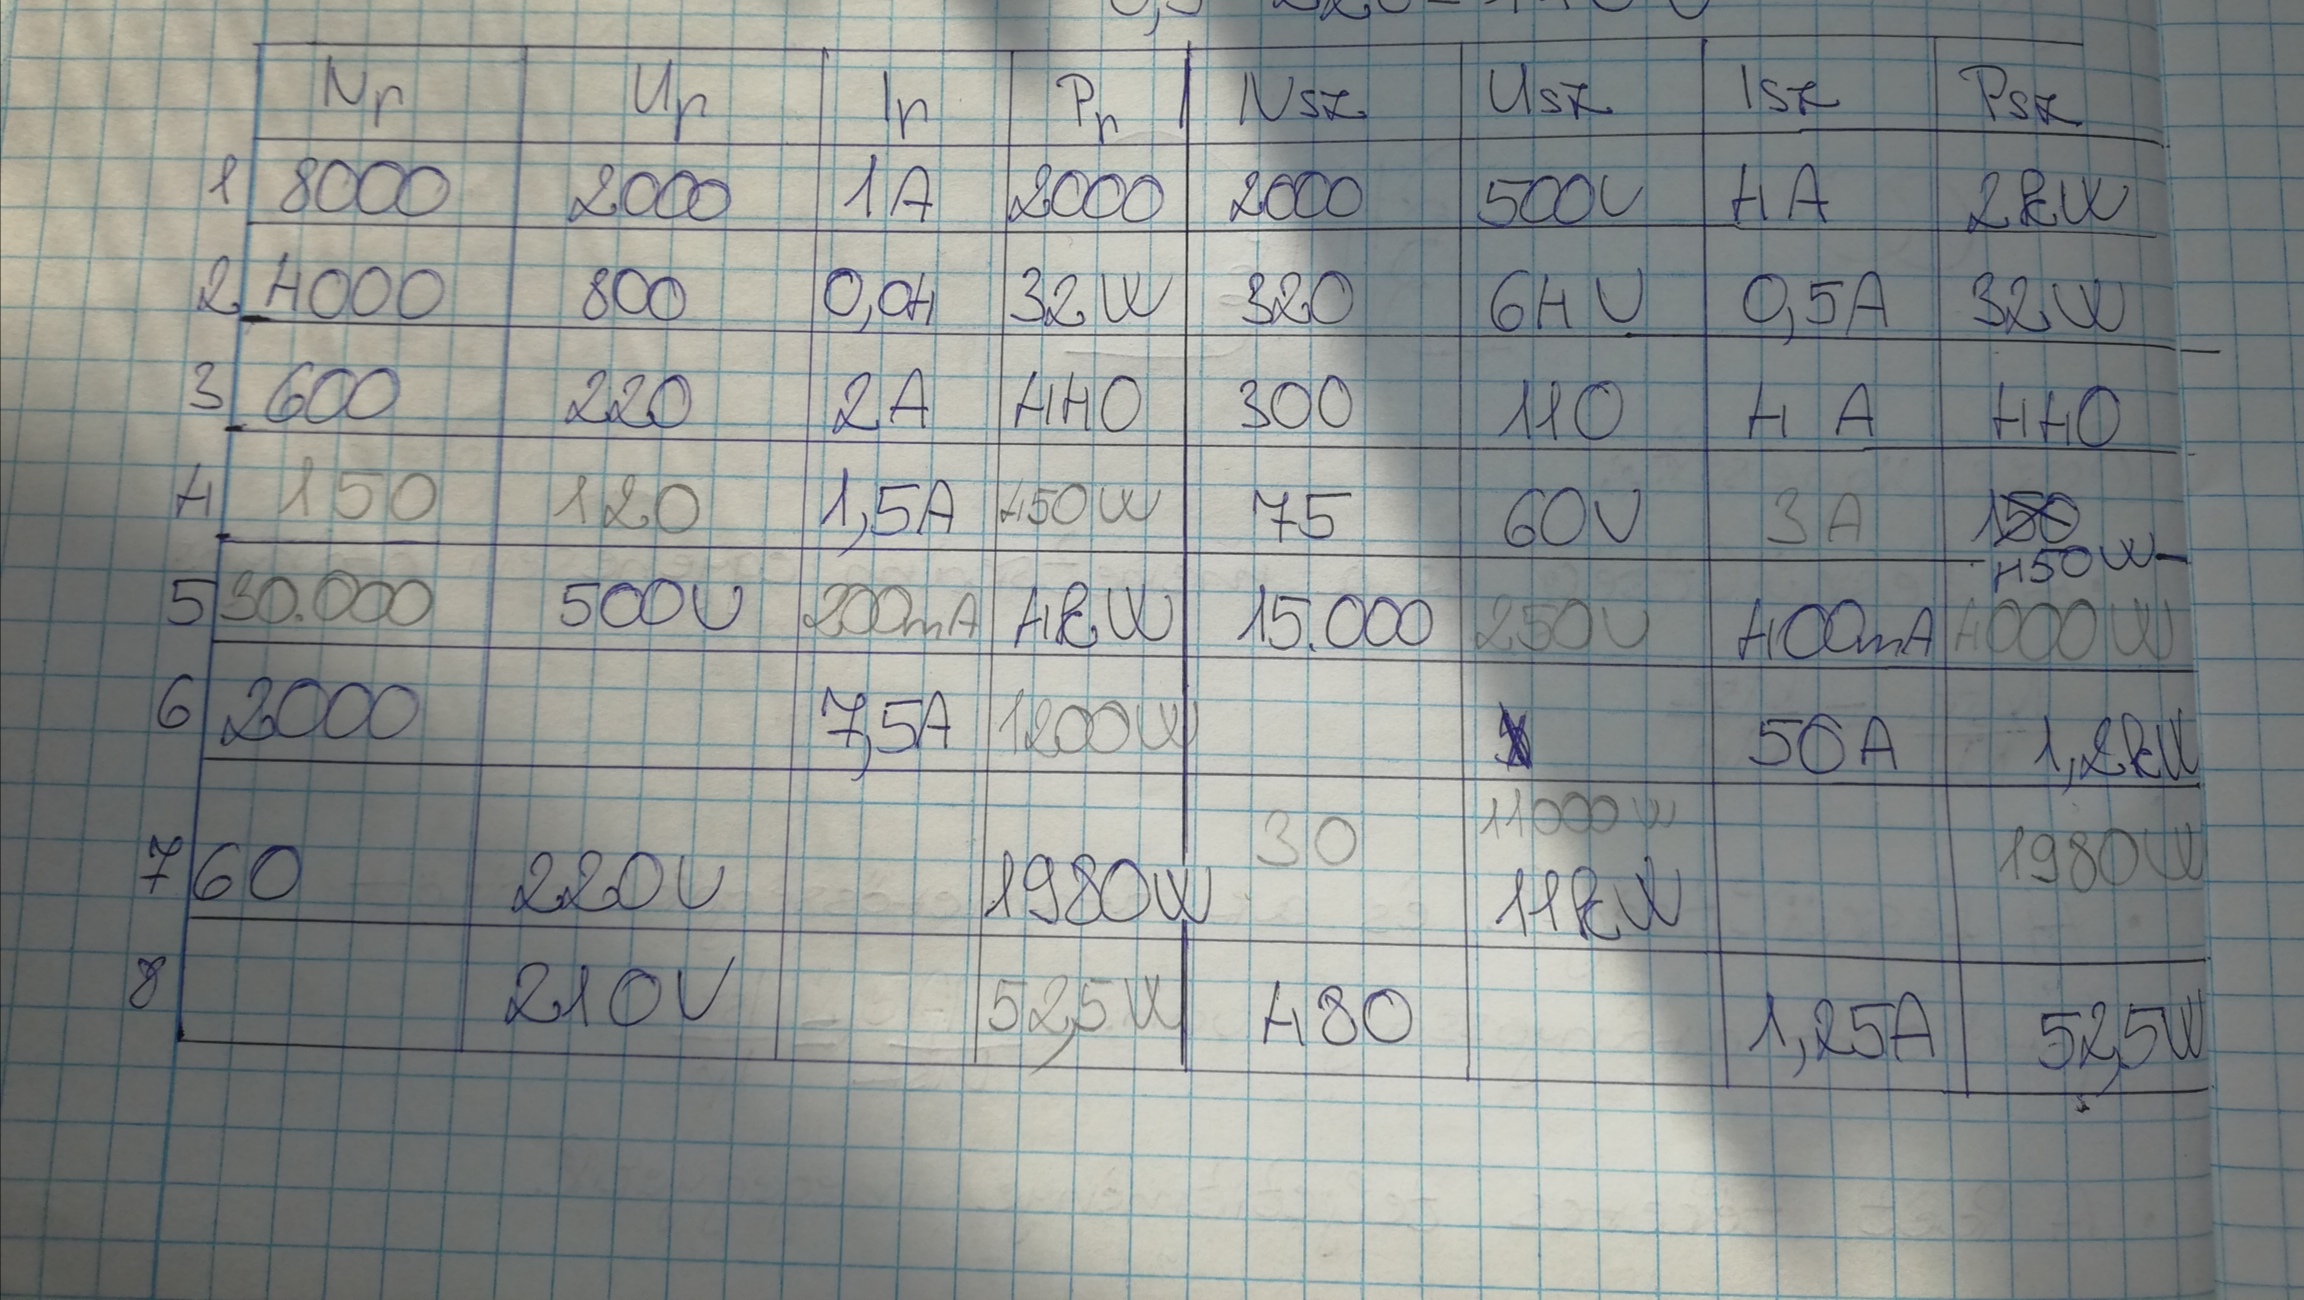 Np Up Ip Pp Nsz Usz Isz Psz
1 8000 2000 1A 2000 2000 500V 4A 2kW
2 4000 800 0,04 32W 320 64V 0,5A 32W
3 600 220 2A 440 300 110 4A 440
4 150 120 1,5A 450W 75 60V 3A 150
450W
5 30.000 500V 200mA 4kW 15.000 250V 400mA 4000W
6 2000 7,5A 1200W 50A 1,2kW
7 60 220V 1980W 30 11000W 1980W
11kW
8 210V 52,5W 480 1,25A 52,5W